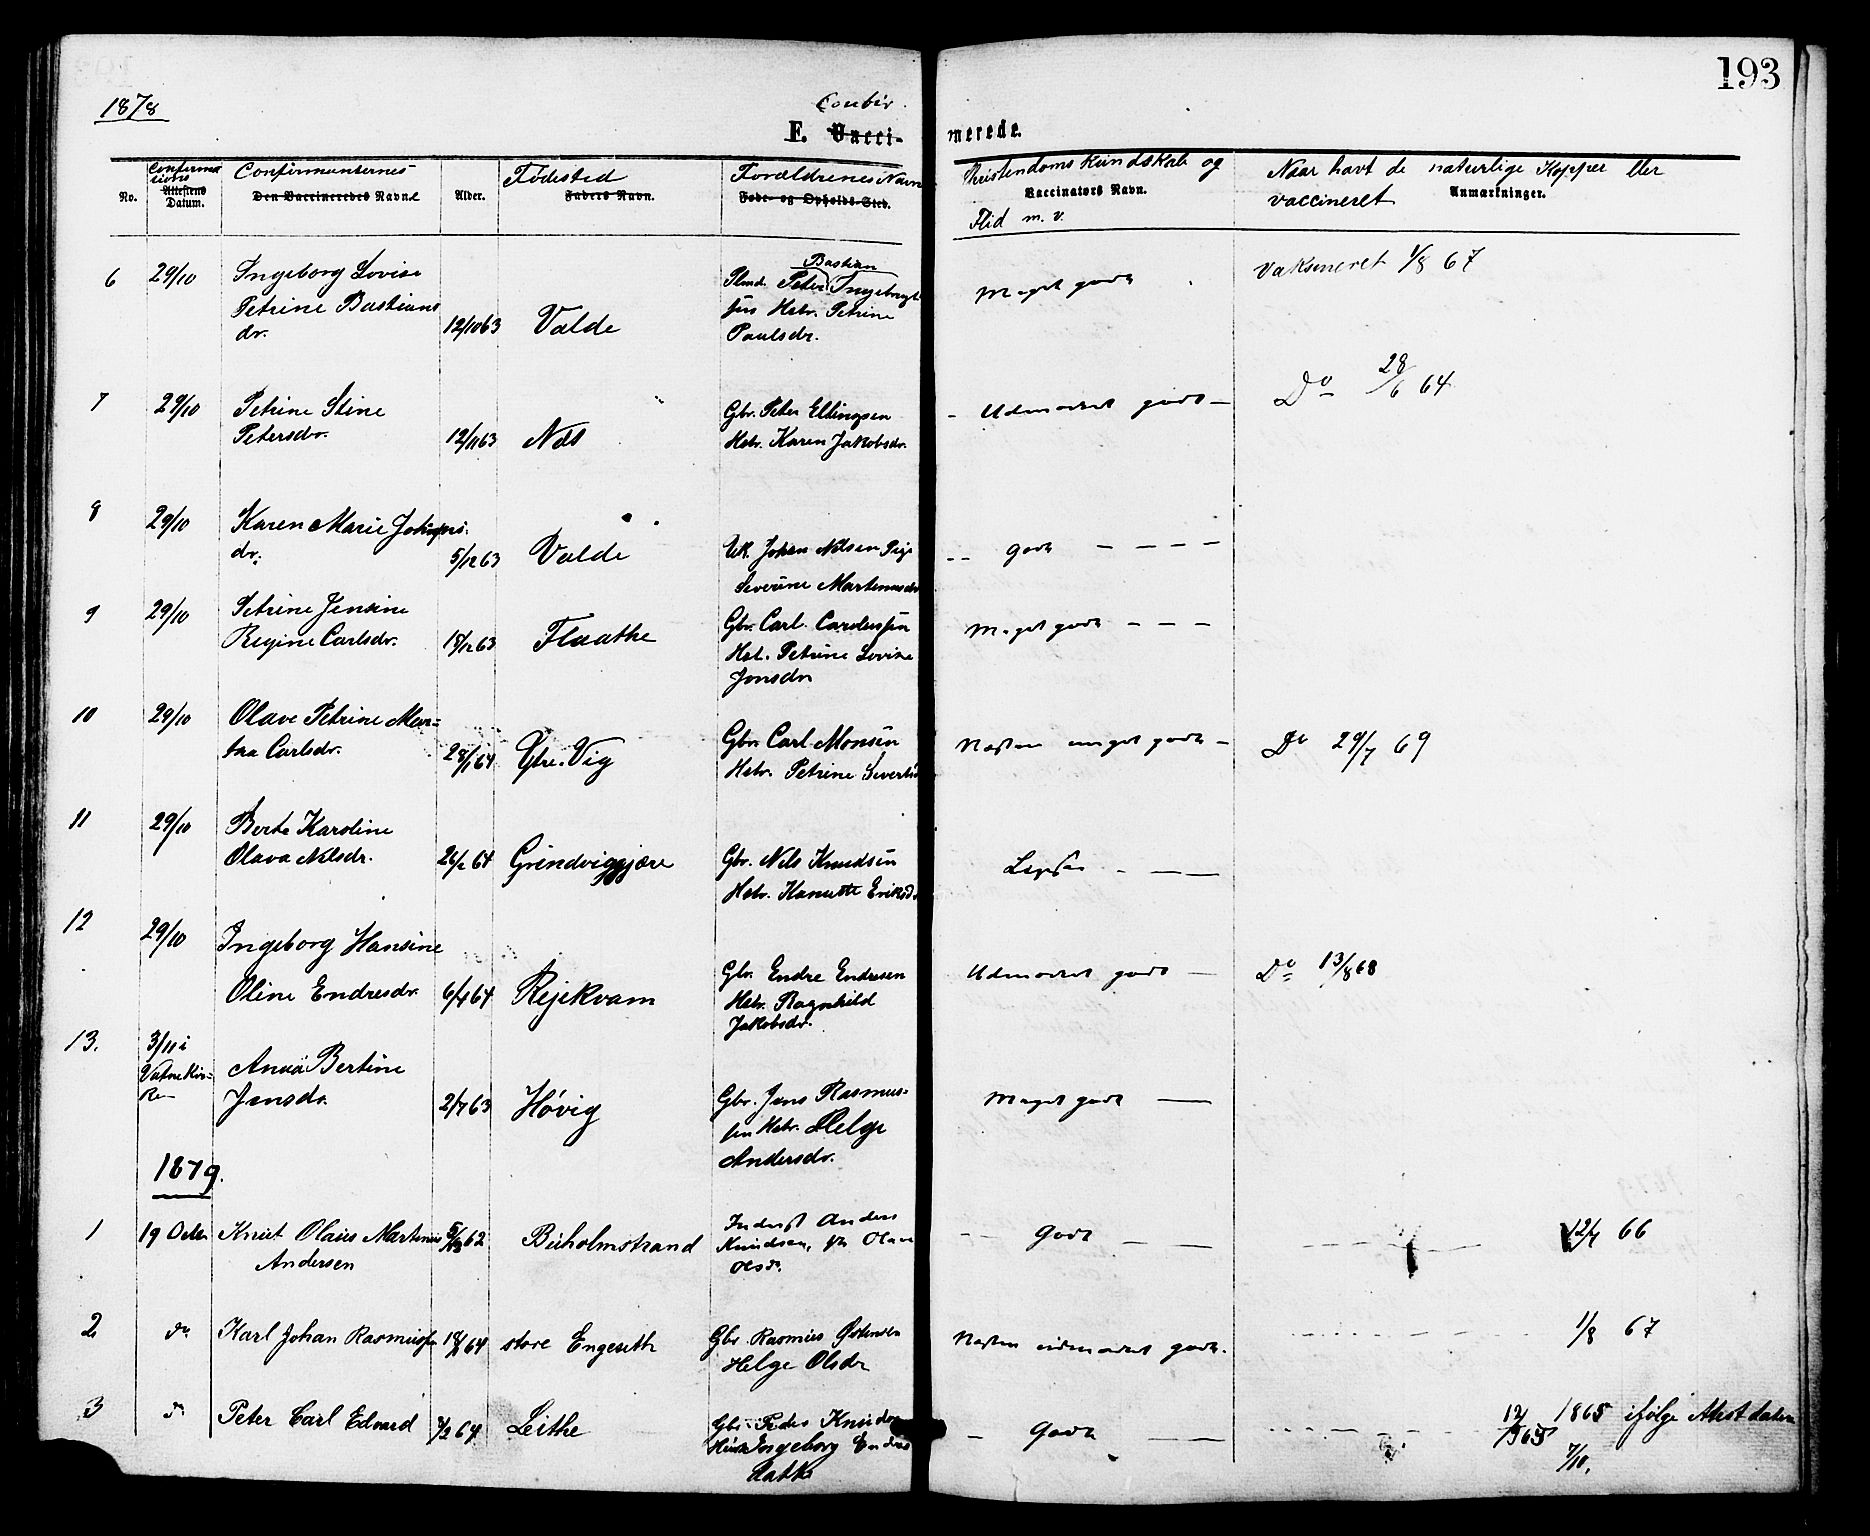 193
1878
Confir
F. Vacci- merede.
No.
Confirma
tions
Attestens
Datum.
Confirmanternes
Den Vaccineredes Navn.
Alder.
Fødested
Faders Navn.
Forældrenes Navn
Føde- og Opholds-Sted.
Christendoms Kundskab og
Vaccinators Navn.
Flid m. v.
Naar havt de naturlige Kopper eller
vaccineret Anmærkninger.
6 29/10 Ingeborg Lovise
Petrine Bastians
dr. 12/10 63 Valde
Bastian
Peter Ingebrigt
sen Hstr. Petrine
Paulsdr.
Meget godt
Vaksineret 1/8 67
7 29/10 Petrine Stine
Petersdr. 12/11 63 Næs
Gbr. Peter Ellingsen
Hstr. Karen Jakobsdr.
Udmærket godt
Do 28/6 64
8 29/10 Karen Marie Johans
dr. 5/12 63 Valde
Uk. Johan Nilsen Pige
Severine Martinusdr
godt
9 29/10 Petrine Jensine
Regine Carlsdr. 18/12 63 Flaathe
Gbr. Carl Carolussen
Hst. Petrine Lovise
Jonsdr
Meget godt
10 29/10 Olave Petrine Mar=
taa Carlsdr. 28/1 64 Ytre. Vig
Gbr. Carl Monsen
Hstr. Petrine Sivertsd
Næsten meget godt
Do 29/7 69
11 29/10 Berte Karoline
Olava Nilsdr. 26/2 64 Grindviggjære
Gbr. Nils Knudsen
Hstr. Kanutte Eriksd.
12 29/10 Ingeborg Hansine
Oline Endresdr. 6/4 64 Rejekvam
Gbr. Endre Endresen
Hstr. Ragnhild
Jakobsdr.
Udmærket godt
Do 13/8 68
13. 3/11 i
Vatne Kir=
ke
Anna Bertine
Jensdr. 2/7 63 Høvig
Gbr. Jens Rasmus=
sen Hstr. Helge
Andersdr.
Meget godt
1879.
1 19 Octbr Knut Olaus Martinius 62
Andersen
Buholmstrand
Inderst Anders
Knudsen, Olave
Olsdr.
Godt
12/7 66
2 do Karl Johan Rasmussen 64 store Engeseth
Gbr. Rasmus Østensen
Helge Olsdr
Næsten udmærket godt.
1/8 67
3 do Peter Carl Edvard 64 Leithe
Gbr. Peder Knudsen
Hustr Ingeborg Endres
datter
Godt
12 1865 ifølge Attest datert
7/10.